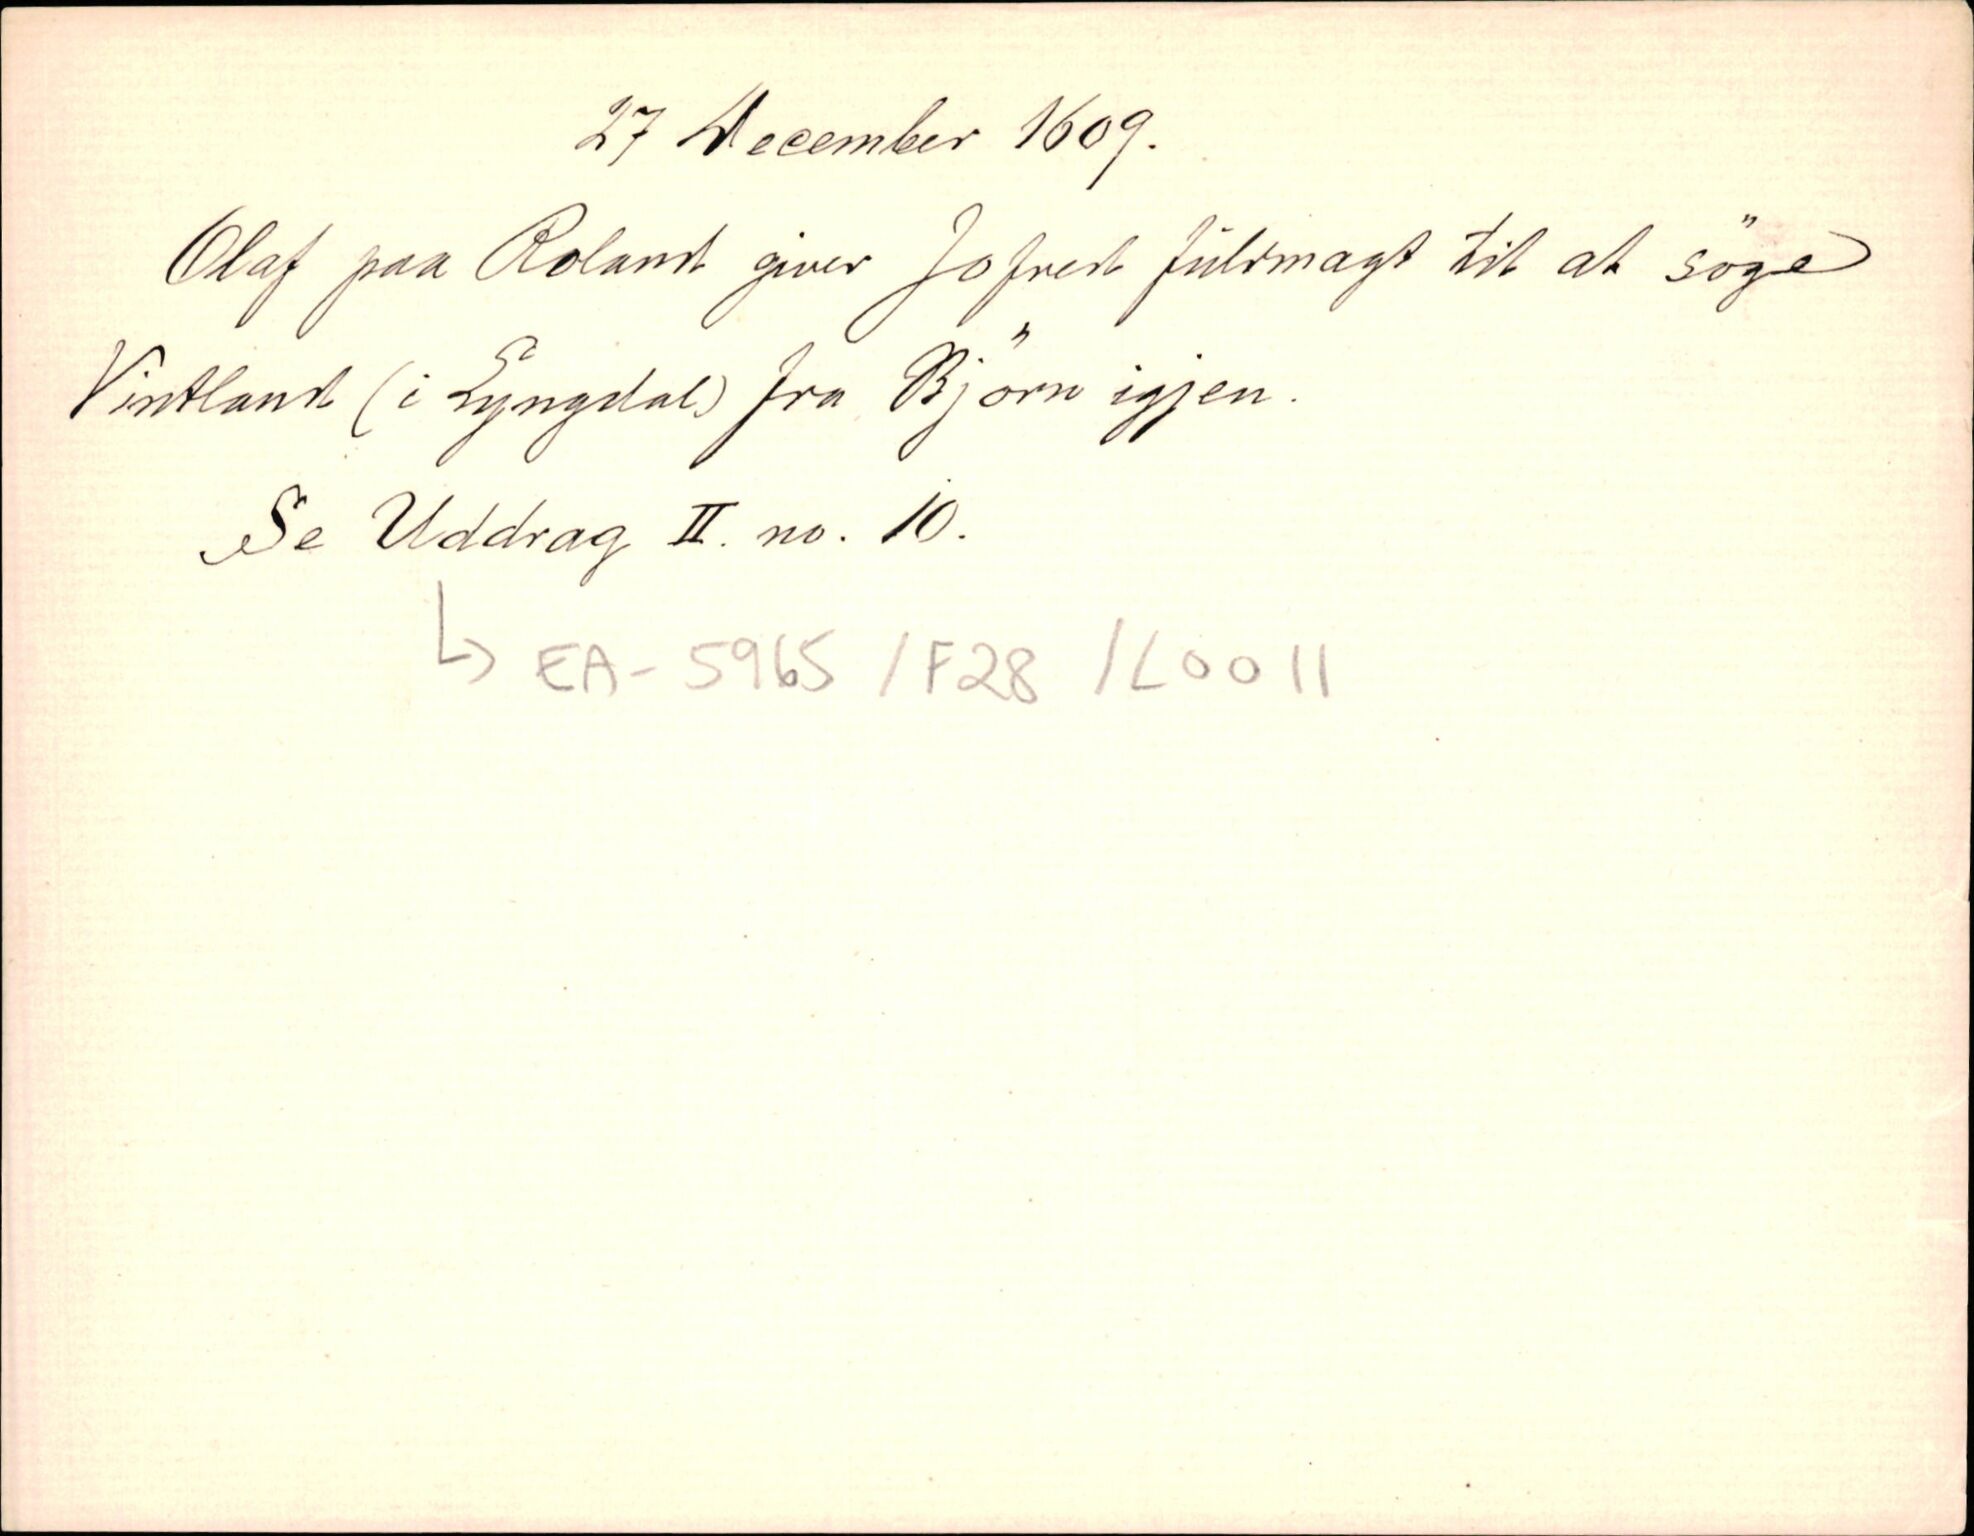 27 December 1609.
Olaf paa Roland giver Jofred fuldmagt til at söge
Vintland (i Lyngdal) fra Björn igjen.
Se Uddrag II. no. 10.
↳ EA-5965 /F28 /L0011